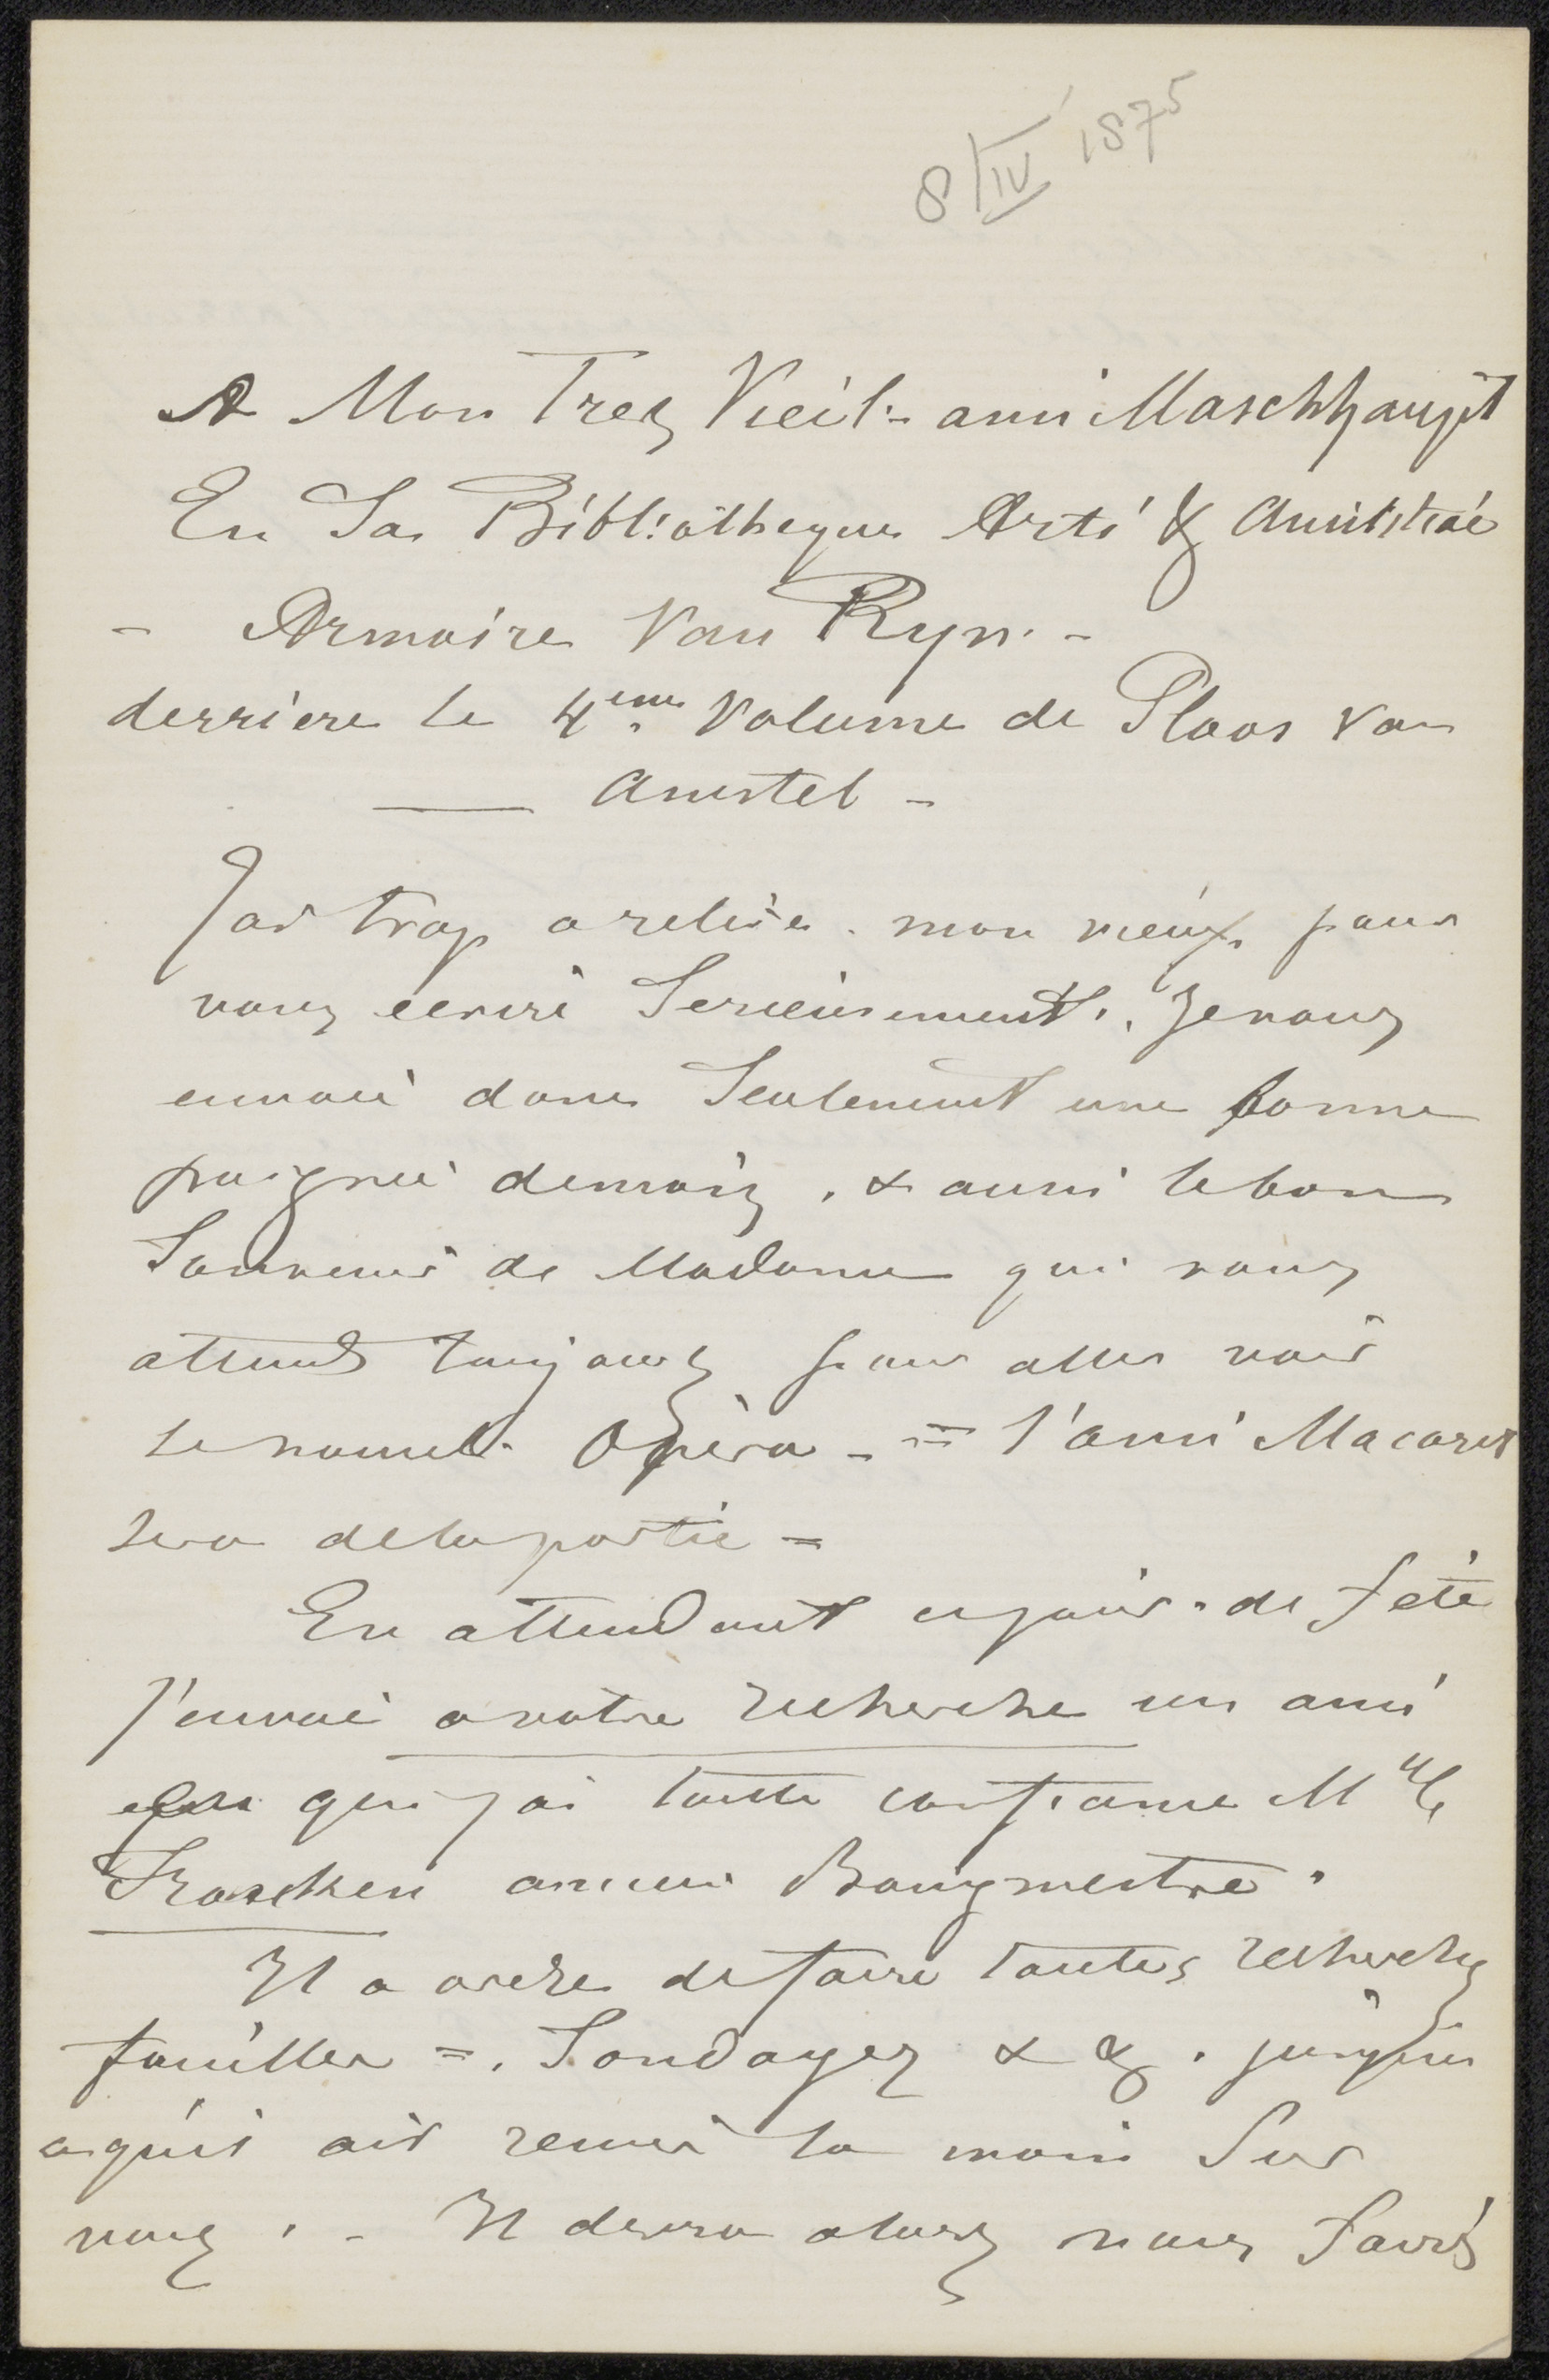 8/IV 1875
A Mon Trez Vieil ami Maschhaupt
En Sa Bibliotheque Arti & Amicitiae
- Armoire Van Ryn -
derriere le 4eme Volume de Ploos Van
Amstel -
J'ai trop a relire mon vieux pour
vous ecrire Serieusement. Je vous
envoie donc Seulement une bonne
poignée demain, & aussi le bon
Souvenir de Madame qui vous
attend toujours pour aller voir
le nouvel Opéra - = l'ami Macaret
sera de la partie =
En attendant ce jour de fete
J'envoie a votre recherche un ami
en qui j'ai toute confiance Mr
Kraschen ancien Bourgmestre.
Il a ordre de faire toutes recherches
fouilles =. Sondages & & . jusqu'
a qu'il ait remis la main Sur
vous . - Il devra alors nous